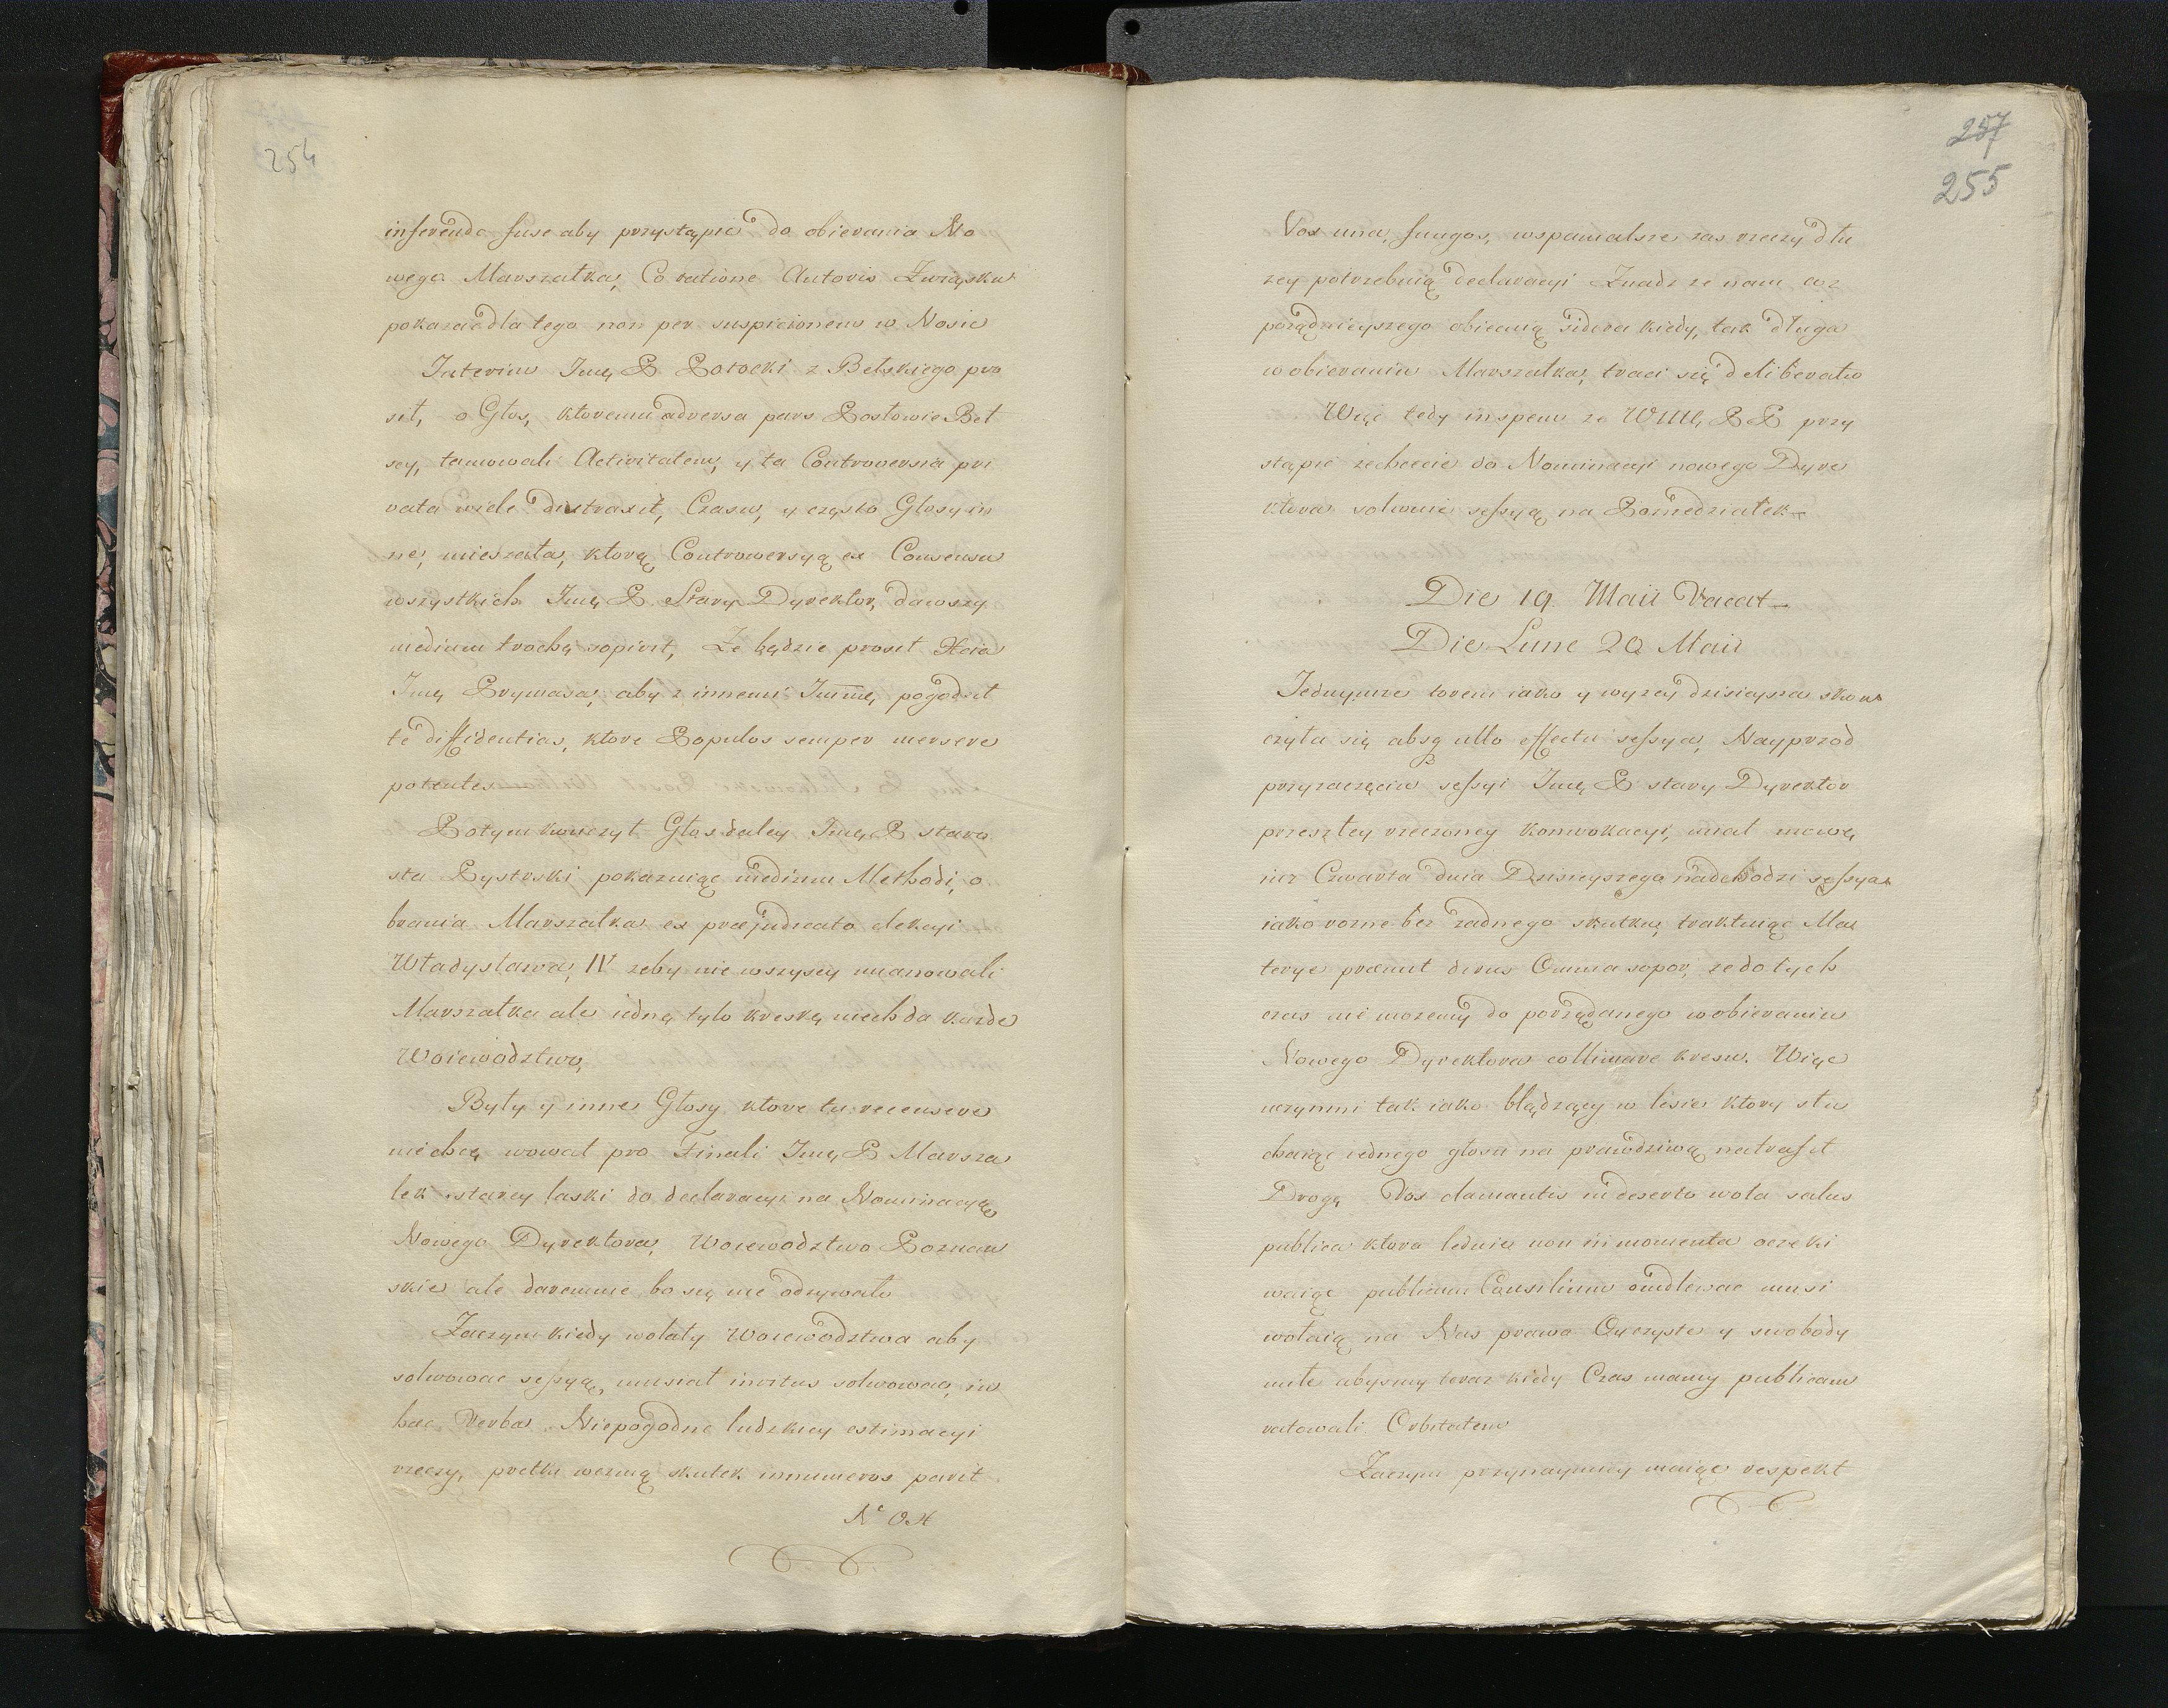 254
inferendo fuse aby przystąpic do obierania No
wego Marszałka, Co ratione Autoris Związku
pokazac dla tego non per suspicionem w Nosic
Interim Jmę P Potocki z Bełskiego pro
sił, o Głos, ktoremu adversa pars Posłowie Beł
scy, tamowali Activitatem, y ta Controversia pri
vata wiele distraxit, Czasu, y często Głosy in
ne, mieszała, ktorą Controwersyą ex Consensu
wszystkich Jmę P. Stary Dyrektor, dawszy
medium trochę sopivit, Ze będzie prosił Xcia
Jmę Prymasa, aby z innemi Immę, pogodził
te diffidentias, ktore Populos semper mersere
potentes
Potym konczył Głos daley Jmę P. staro
sta Pyszrski pokazuiąc medium Methodi, o
brania Marszałka ex praejudicato elekcyi
Władysława, IV zeby nie wszyscy mianowali
Marszałka ale iedną tylo kreskę niech da kazde
Woiewodztwo,
Były y inne Głosy ktore tu recensere
niechcę wował pro Finali Jmę P Marsza
łek starey laski do declaracyi na Nominacyąę
Nowego Dyrektora, Woiewodztwo Poznan
skie ale daremnie bo się nie odzywało
Zaczym kiedy wołały Woiewodztwa aby
solwowac sessyąę, musiał invitus solwowac, in
haec Verba Niepogodne ludzkiey estimacyi
rzeczy, prętki wezmą skutek innumeros parit
NOX
257
255
Vox una, fungos, wspanialsze zas rzeczy dłu
zey potrzebuią declaracyi Znadz ze nam cos
porządnieyszego obiecuią sidera kiedy, tak długa
w obieraniu Marszałka, traci się deliberatio
Więc tedy in spem ze WMMę PP przy
stąpic zechcecie do Nominacyi nowego Dyre
ktora solwuie sessyą na Poniedziałek
Die 19 Maii Vacat
Die Lune 20 Maii
Jednymze torem iako y wyzey dzisieysza skon
czyła się absq ullo effectu sessya, Nayprzod
przy zaczęciu sessyi Jmę P stary Dyrektor
przeszłey rzeczoney konwokacyi, miał mowę
iuz Czwarta dnia Dzisieyszego nadchodzi sessya
iako rozne bez zadnego skutku, traktuiąc Ma
terye praemit dirus Omnia sopor, ze do tych
czas nie mozemy do porządanego w obieraniu
Nowego Dyrektora collimare kresu. Więc
uczynmi tak iako błądzący w lesie ktory słu
chaiąc iednego głosu na prawdziwą natrafił
Drogę Vox clamantis in deserto woła salus
publica ktora ledwie non in momenta oczeki
waiąc publicum Consilium omdlewac musi
wołaią na Nas prawa Oyczyste y swobody
miłe abysmy teraz kiedy Czas mamy publicam
ratowali Orbitatem
Zaczym przynaymniey maiąc respekt